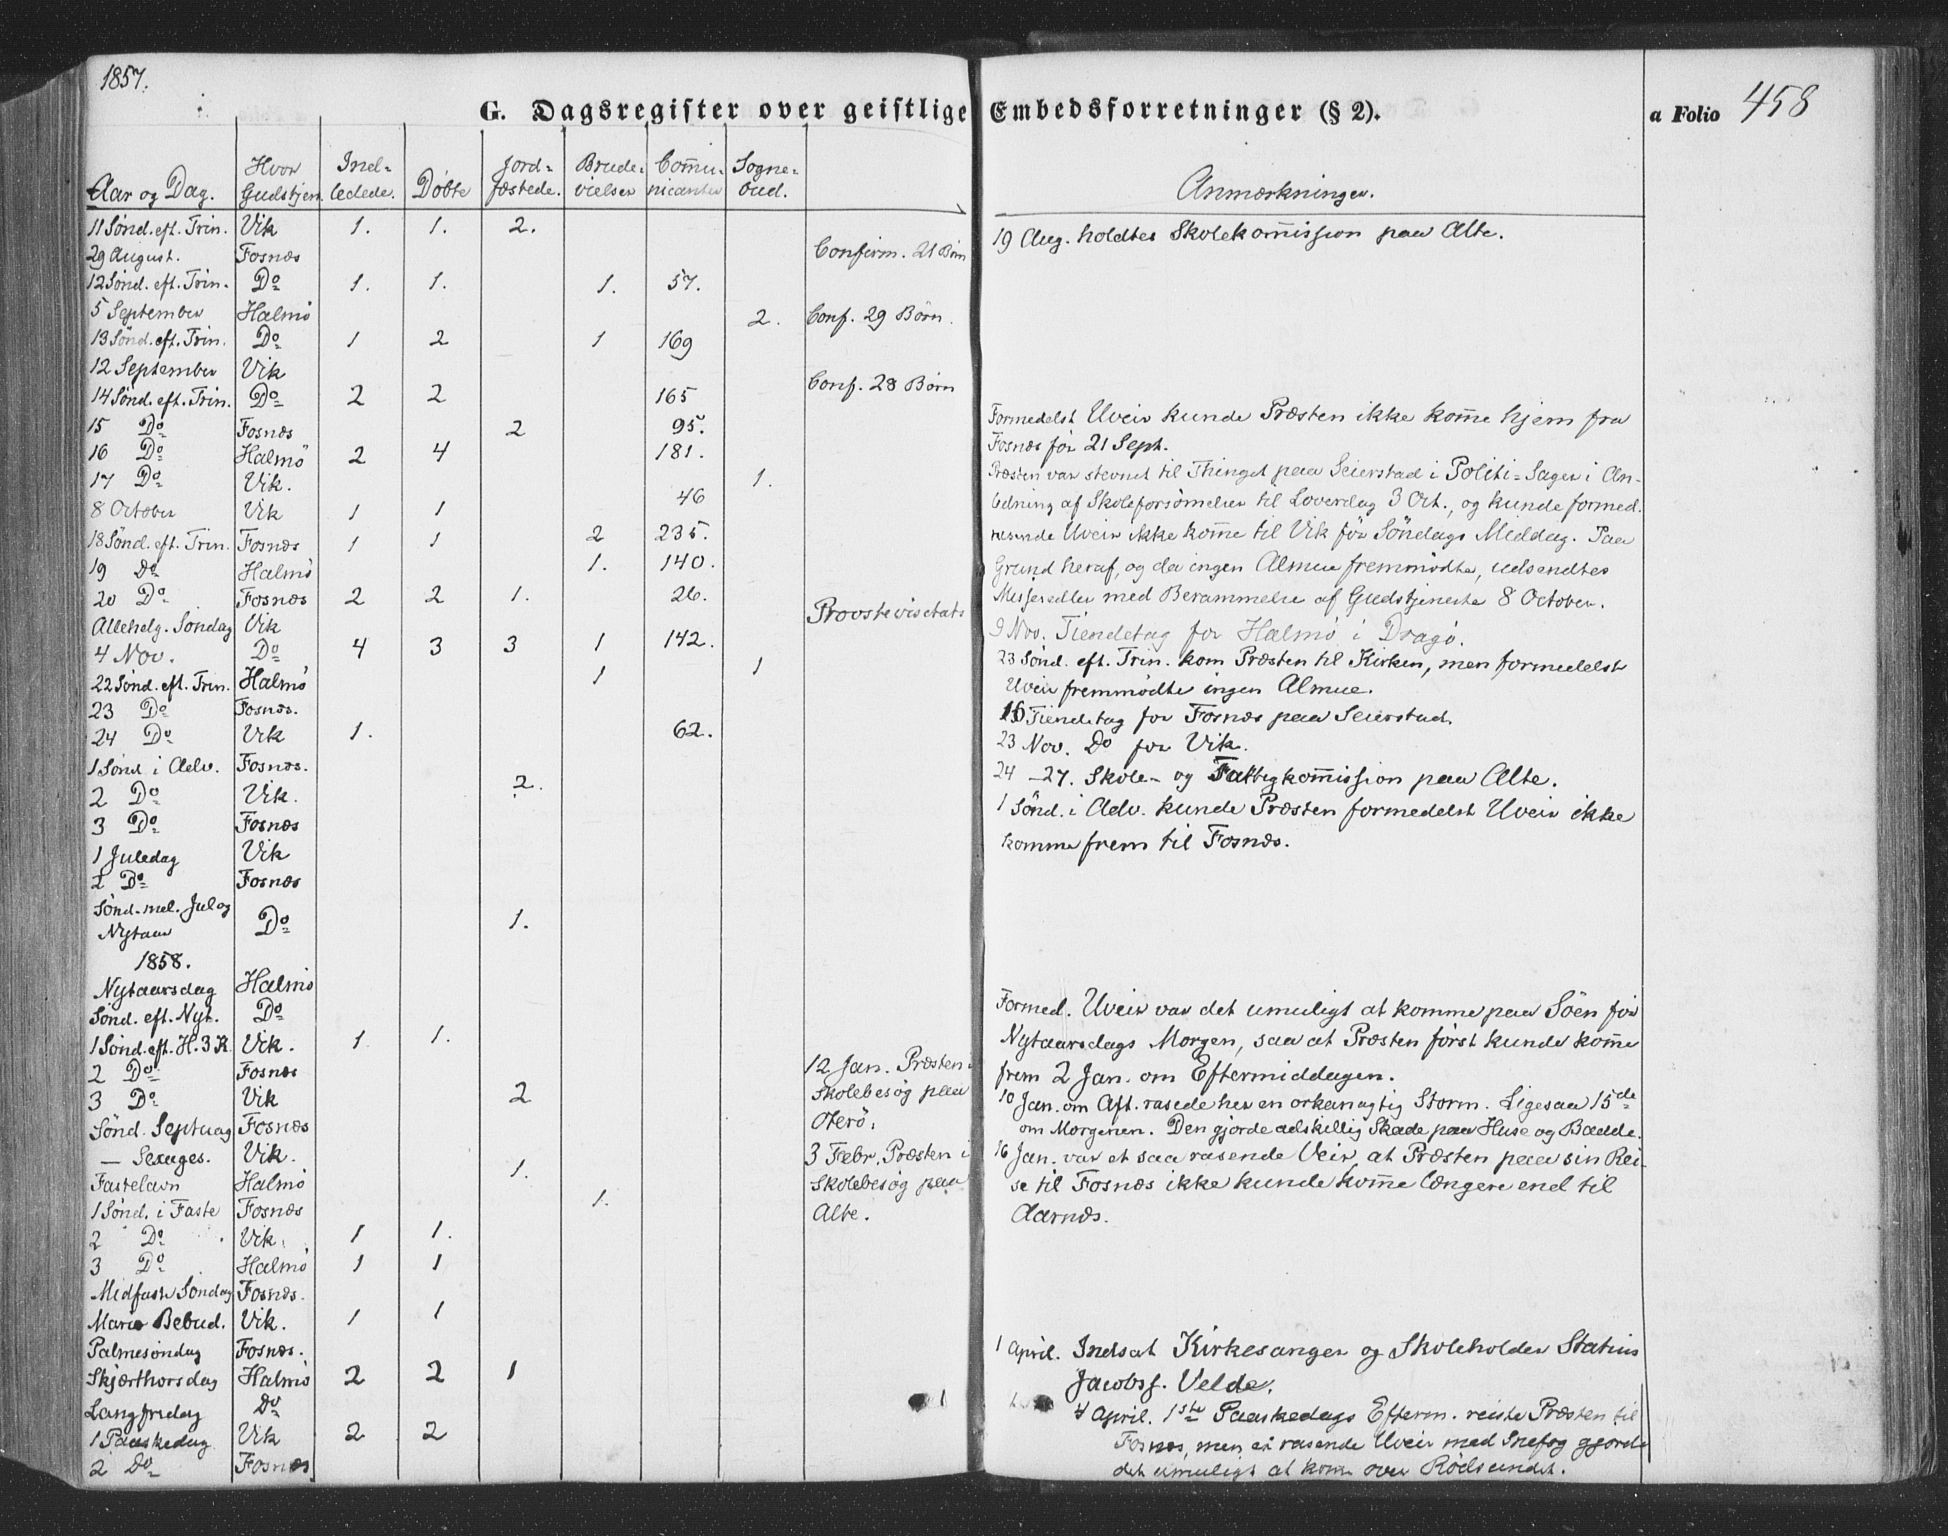 1857.
G. Dagsregister over geistlige Embedsforretninger (§ 2). a Folio 458
Aar og Dag. Hvor Gudstjen. Ind- ledede. Döbte Jord- fæstede. Brude- vielser Com̄u- nicanter Sogne- bud.
11 Sönd. eft. Trin. Vik 1. 1. 2.
29 August. Fosnæs Confirm. 21 Börn
12 Sönd. eft. Trin. Do 1. 1. 1. 57.
5 September Halmö 2. Conf. 29 Börn.
13 Sönd. eft. Trin. Do 1 2 1 169
12 September Vik Conf. 28 Börn
14 Sönd. eft. Trin. Do 2 2 165
15 Do Fosnæs 2 95.
16 Do Halmö 2 4 181.
17 Do Vik. 1.
8 October Vik 1 1 46
18 Sönd. eft. Trin. Fosnæs 1 1 2 235.
19 Do Halmö 1. 140.
20 Do Fosnæs 2 2 1. 26.
Allehelg. Söndag Vik Provstevisetats
4 Nov. Do 4 3 3 1 142.
22 Sönd. eft. Trin. Halmö 1 1
23 Do Fosnæs.
24 Do Vik 1. 62.
1 Sönd i Adv. Fosnæs.
2 Do Vik. 2.
3 Do Fosnæs
1 Juledag Vik
2 Do Fosnæs
Sönd. mel. Jul og
Nytaar Do 1.
1858.
Nytaarsdag Halmö
Sönd. eft. Nyt. Do
1 Sönd. eft. H. 3 K. Vik. 1. 1.
2 Do Fosnæs 12 Jan. Præsten i
3 Do Vik 2 Skolebesög paa
Sönd. Septuag Fosnæs Oterö.
— Sexages. Vik. 3 Febr. Præsten i
Fastelavn Halmö 1. Skolebesög paa
1 Sönd. i Faste Fosnæs 1. Alte.
2 Do Vik. 1 1.
3 Do Halmö 1 1
Midfaste Söndag Fosnæs.
Mariæ Bebud. Vik. 1 1
Palmesöndag Fosnæs.
Skjærthorsdag Halmö 2 2 1
Langfredag Do 1
1 Paaskedag Vik 2 2
2 Do Fosnæs
Anmærkninger.
19 Aug. holdtes Skolekom̄ission paa Alte.
Formedelst Uveir kunde Præsten ikke kom̄e hjem fra
Fosnæs för 21 Sept.
Præsten var stevnet til Thinget paa Seierstad i Politi-Sager i An-
ledning af Skoleforsömmelser til Löverdag 3 Oct., og kunde formed.
rasende Uveir ikke kom̄e til Vik för Söndags Middag. Paa
Grund heraf, og da ingen Almue fremmödte, udsendtes
Messesedler med Berammelse af Gudstjeneste 8 October.
9 Nov. Tiendetag for Halmö i Dragö.
23 Sönd. eft. Trin. kom Præsten til Kirken, men formedelst
Uveir fremmödte ingen Almue.
16 Tiendetag for Fosnæs paa Seierstad.
23 Nov. Do for Vik.
24 –27. Skole- og Fattigkom̄ission paa Alte.
1 Sönd. i Adv. kunde Præsten formedelst Uveir ikke
komme frem til Fosnæs.
Formed. Uveir var det umuligt at komme paa Söen för
Nytaarsdags Morgen, saa at Præsten först kunde kom̄e
frem 2 Jan. om Eftermiddagen.
10 Jan. om Aft. rasede her en orkanagtig Storm. Ligesaa 15de
om Morgenen. Den gjorde adskillig Skade paa Huse og Baade.
16 Jan. var et saa rasende Veir at Præsten paa sin Rei-
se til Fosnæs ikke kunde kom̄e længere end til
Aarnæs.
1 April. Indsat Kirkesanger og Skoleholder Statius
Jacobsf. Velde.
4 April. 1ste Paaskedags Efterm. reiste Præsten til
Fosnæs, men et rasende Uveir med Snefog gjorde
det umuligt at kom̄e over Rödsundet.